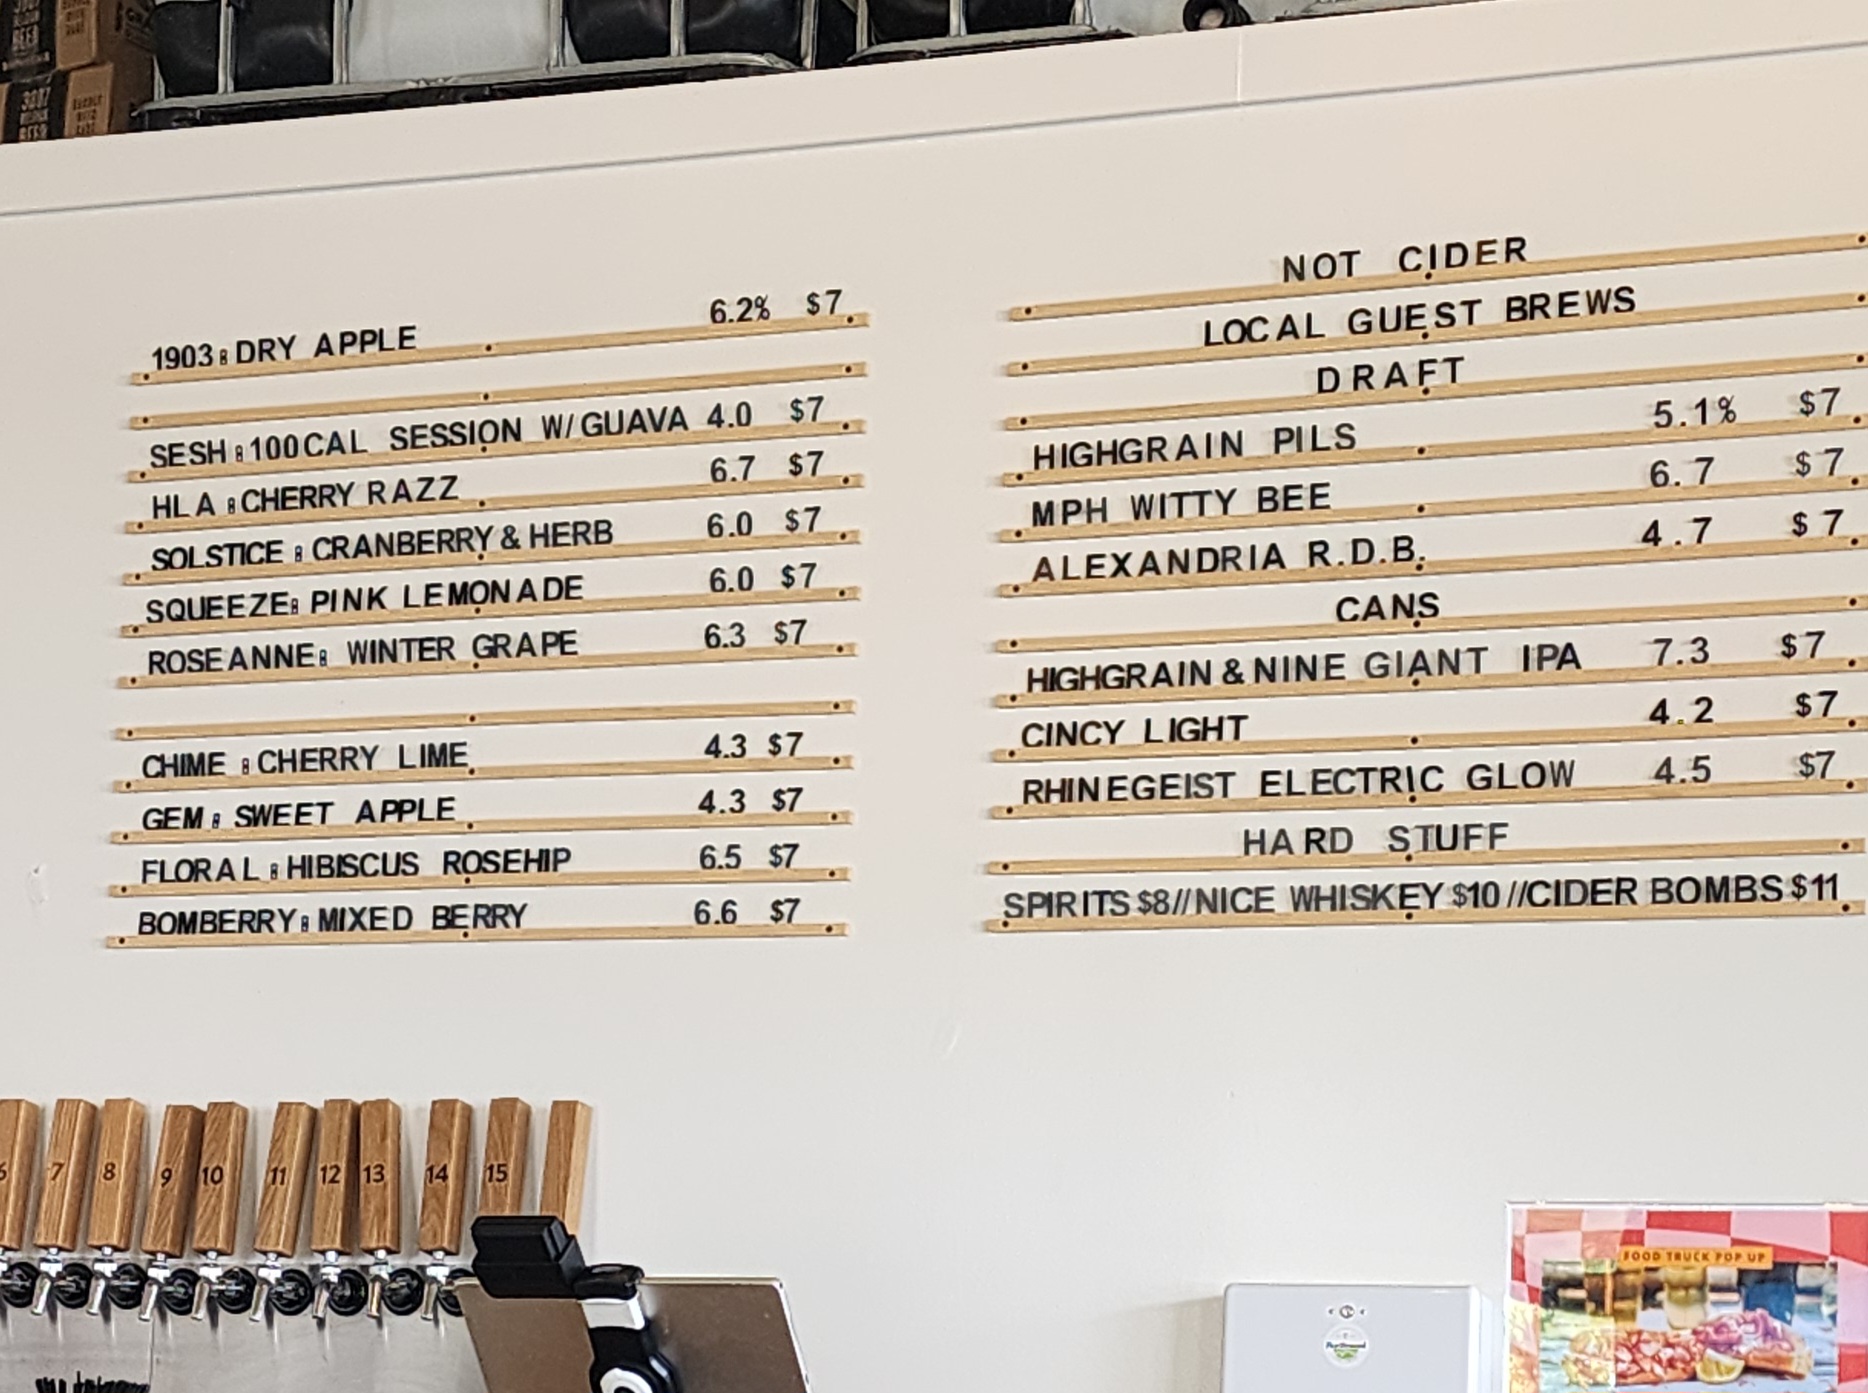 1903: DRY APPLE 6.2% $7
SESH: 100 CAL SESSION W/ GUAVA 4.0 $7
HLA: CHERRY RAZZ 6.7 $7
SOLSTICE: CRANBERRY & HERB 6.0 $7
SQUEEZE: PINK LEMONADE 6.0 $7
ROSEANNE: WINTER GRAPE 6.3 $7
CHIME: CHERRY LIME 4.3 $7
GEM: SWEET APPLE 4.3 $7
FLORAL: HIBISCUS ROSEHIP 6.5 $7
BOMBERRY: MIXED BERRY 6.6 $7
NOT CIDER
LOCAL GUEST BREWS
DRAFT
HIGHGRAIN PILS 5.1% $7
MPH WITTY BEE 6.7 $7
ALEXANDRIA R.D.B. 4.7 $7
CANS
HIGHGRAIN & NINE GIANT IPA 7.3 $7
CINCY LIGHT 4.2 $7
RHINEGEIST ELECTRIC GLOW 4.5 $7
HARD STUFF
SPIRITS $8//NICE WHISKEY $10//CIDER BOMBS $11
6 7 8 9 10 11 12 13 14 15
FOOD TRUCK POP UP